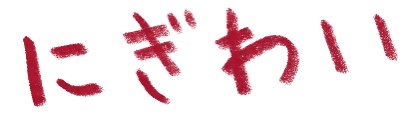 にぎわい